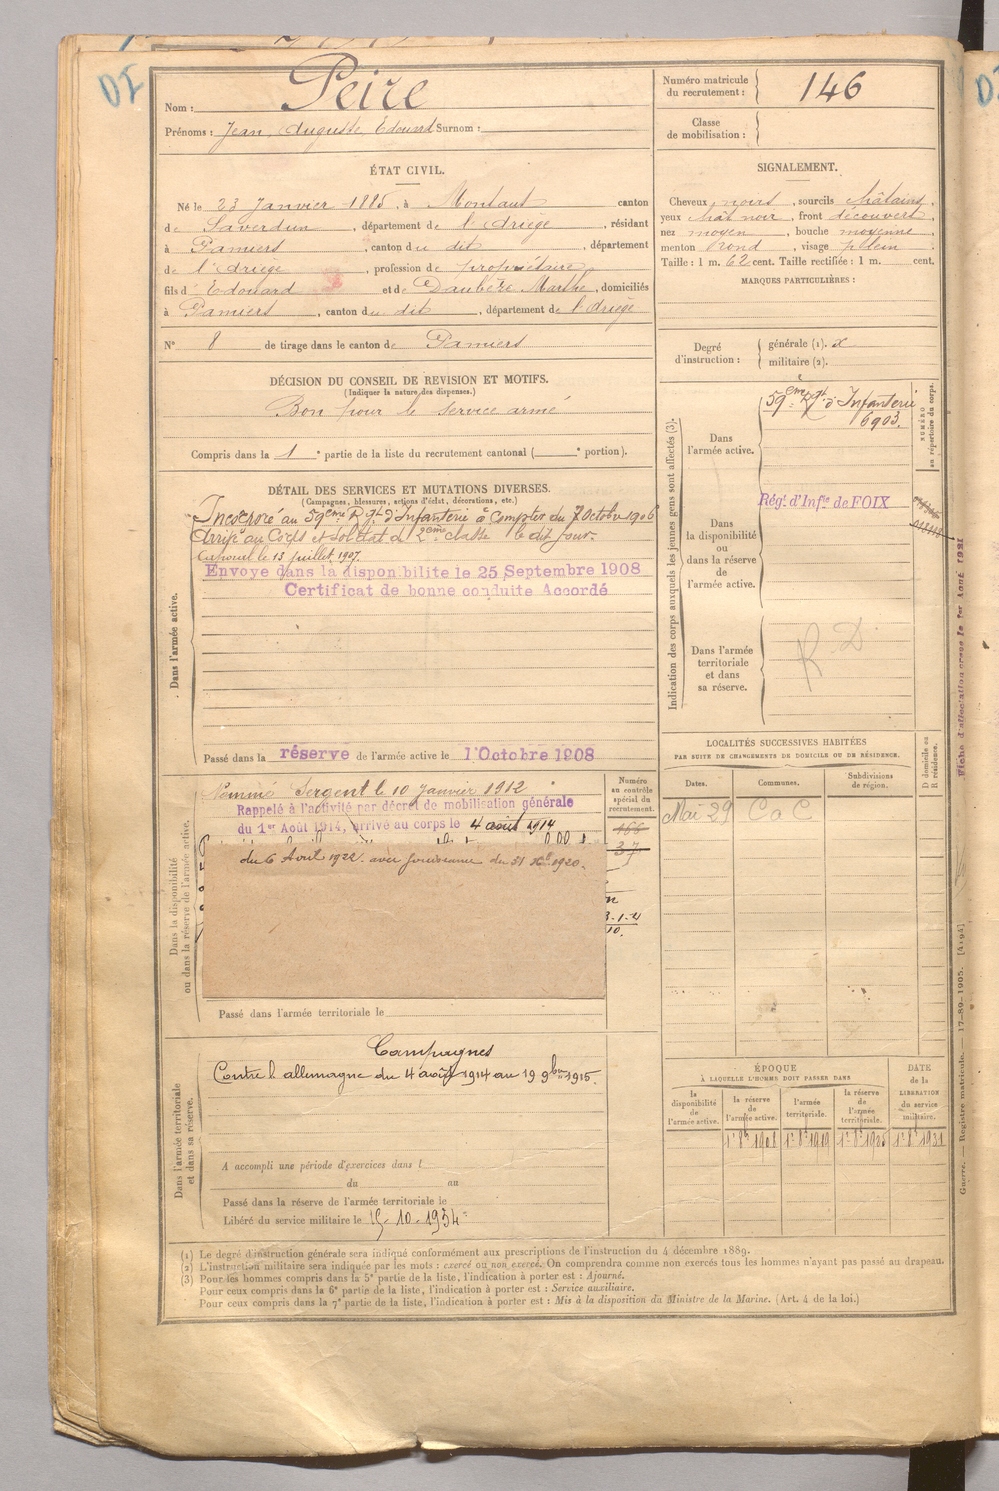 Nom : Peire
Prénoms : Jean Auguste Edouard Surnom :
Numéro matricule du recrutement : 146
Classe de mobilisation :
ÉTAT CIVIL.
Né le 23 Janvier 1885, à Montaut canton
de Saverdun, département de l'Ariège, résidant
à Pamiers, canton du dit, département
de l'Ariège, profession de propriétaire
fils d'Edouard et de Daubèze Marthe, domiciliés
à Pamiers, canton du dit, département de l'Ariège
N° 8 de tirage dans le canton de Pamiers
SIGNALEMENT.
Cheveux noirs, sourcils châtains,
yeux chât noir, front découvert,
nez moyen, bouche moyenne,
menton rond, visage plein
Taille : 1 m. 62 cent. Taille rectifiée : 1 m. cent.
MARQUES PARTICULIÈRES :
Degré d'instruction :
générale (1). x
militaire (2).
DÉCISION DU CONSEIL DE REVISION ET MOTIFS.
(Indiquer la nature des dispenses.)
Bon pour le service armé
Compris dans la 1e partie de la liste du recrutement cantonal ( e portion).
DÉTAIL DES SERVICES ET MUTATIONS DIVERSES.
(Campagnes, blessures, actions d'éclat, décorations, etc.)
Dans l'armée active.
Incorporé au 59eme Rgt d'Infanterie à compter du 7 Octobre 1906
Arrivé au Corps et soldat de 2eme classe le dit jour.
Caporal le 13 juillet 1907.
Envoye dans la disponibilite le 25 Septembre 1908
Certificat de bonne conduite Accordé
Passé dans la réserve de l'armée active le 1 Octobre 1908
Dans la disponibilité ou dans la réserve de l'armée active.
Nommé Sergent le 10 Janvier 1912
Rappelé à l'activité par décret de mobilisation générale
du 1er Août 1914, arrivé au corps le 4 août 1914
du 6 Avril 1922. avec jouissance du 31 Xbre 1920.
Passé dans l'armée territoriale le
Numéro au contrôle spécial du recrutement.
166
37
3-1-2
10.
Dans l'armée territoriale et dans sa réserve.
Campagnes
Contre l'allemagne du 4 août 1914 au 19 9bre 1915.
A accompli une période d'exercices dans l
du au
Passé dans la réserve de l'armée territoriale le
Libéré du service militaire le 15-10-1934
Indication des corps auxquels les jeunes gens sont affectés (3).
NUMÉRO au répertoire du corps.
Dans l'armée active.
59eme Rgt d'Infanterie
6903.
Dans la disponibilité ou dans la réserve de l'armée active.
Rég.t d'Inf.ie de FOIX
Dans l'armée territoriale et dans sa réserve.
R D
LOCALITÉS SUCCESSIVES HABITÉES
PAR SUITE DE CHANGEMENTS DE DOMICILE OU DE RÉSIDENCE.
D domicile ou R résidence.
Dates. Communes. Subdivisions de région.
Mai 29 C a C
ÉPOQUE
À LAQUELLE L'HOMME DOIT PASSER DANS
la disponibilité de l'armée active.
la réserve de l'armée active.
l'armée territoriale.
la réserve de l'armée territoriale.
DATE de la LIBÉRATION du service militaire.
1r 8bre 1908
1r 8bre 1919
(1) Le degré d'instruction générale sera indiqué conformément aux prescriptions de l'instruction du 4 décembre 1889.
(2) L'instruction militaire sera indiquée par les mots : exercé ou non exercé. On comprendra comme non exercés tous les hommes n'ayant pas passé au drapeau.
(3) Pour les hommes compris dans la 5e partie de la liste, l'indication à porter est : Ajourné.
Pour ceux compris dans la 6e partie de la liste, l'indication à porter est : Service auxiliaire.
Pour ceux compris dans la 7e partie de la liste, l'indication à porter est : Mis à la disposition du Ministre de la Marine. (Art. 4 de la loi.)
Guerre. — Registre matricule. — 17-89-1905. [4194]